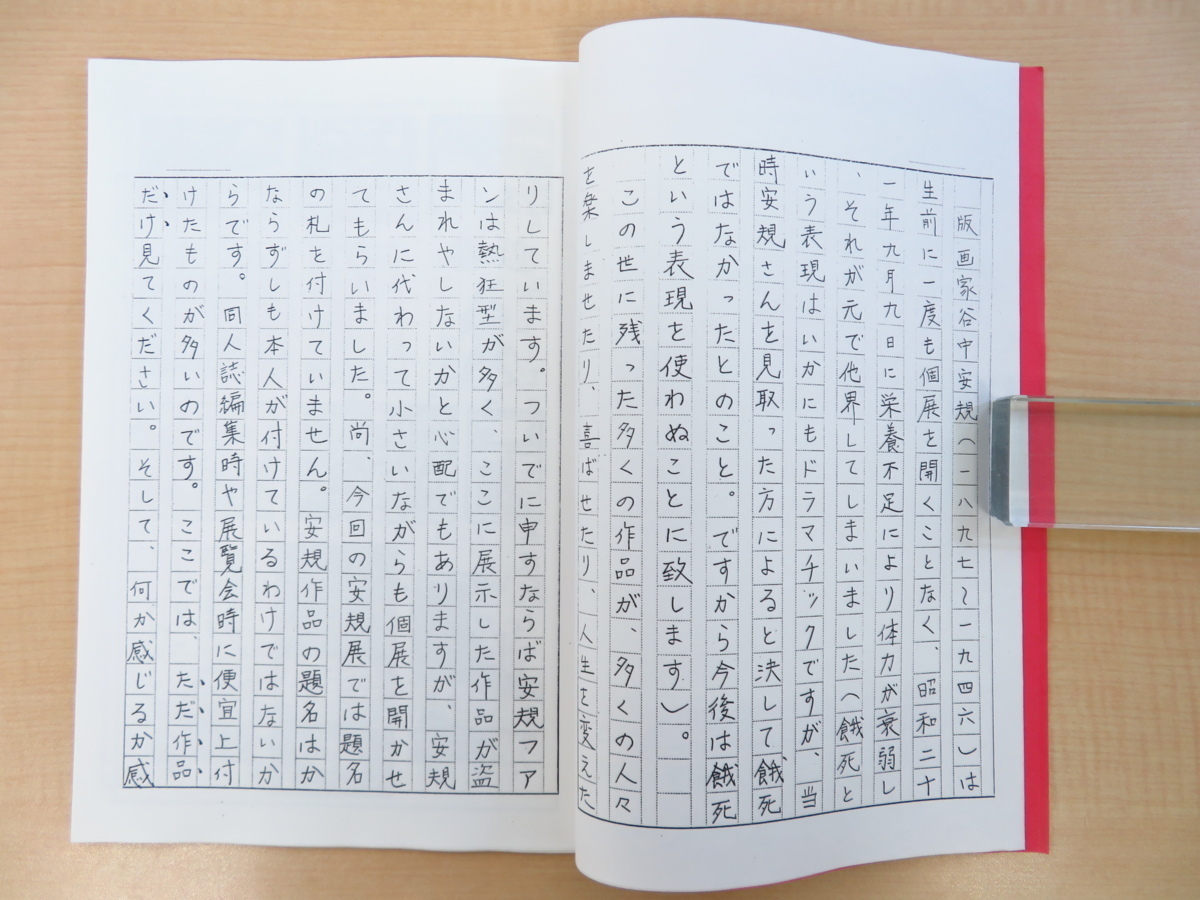 版画家谷中安規(一八九七〜一九四六)は
生前に一度も個展を開くことなく、昭和二十
一年九月九日に栄養不足により体力が衰弱し
、それが元で他界してしまいました(餓死と
いう表現はいかにもドラマチックですが、当
時安規さんを見取った方によると決して餓死
ではなかったとのこと。ですから今後は餓死
という表現を使わぬことに致します)。
この世に残った多くの作品が、多くの人々
を楽しませたり、喜ばせたり、人生を変えた
りしています。ついでに申すならば安規ファ
ンは熱狂型が多く、ここに展示した作品が盗
まれやしないかと心配でもありますが、安規
さんに代わって小さいながらも個展を開かせ
てもらいました。尚、今回の安規展では題名
の札を付けていません。安規作品の題名はか
ならずしも本人が付けているわけではないか
らです。同人誌編集時や展覧会時に便宜上付
けたものが多いのです。ここでは、ただ作品
だけ見てください。そして、何か感じるか感